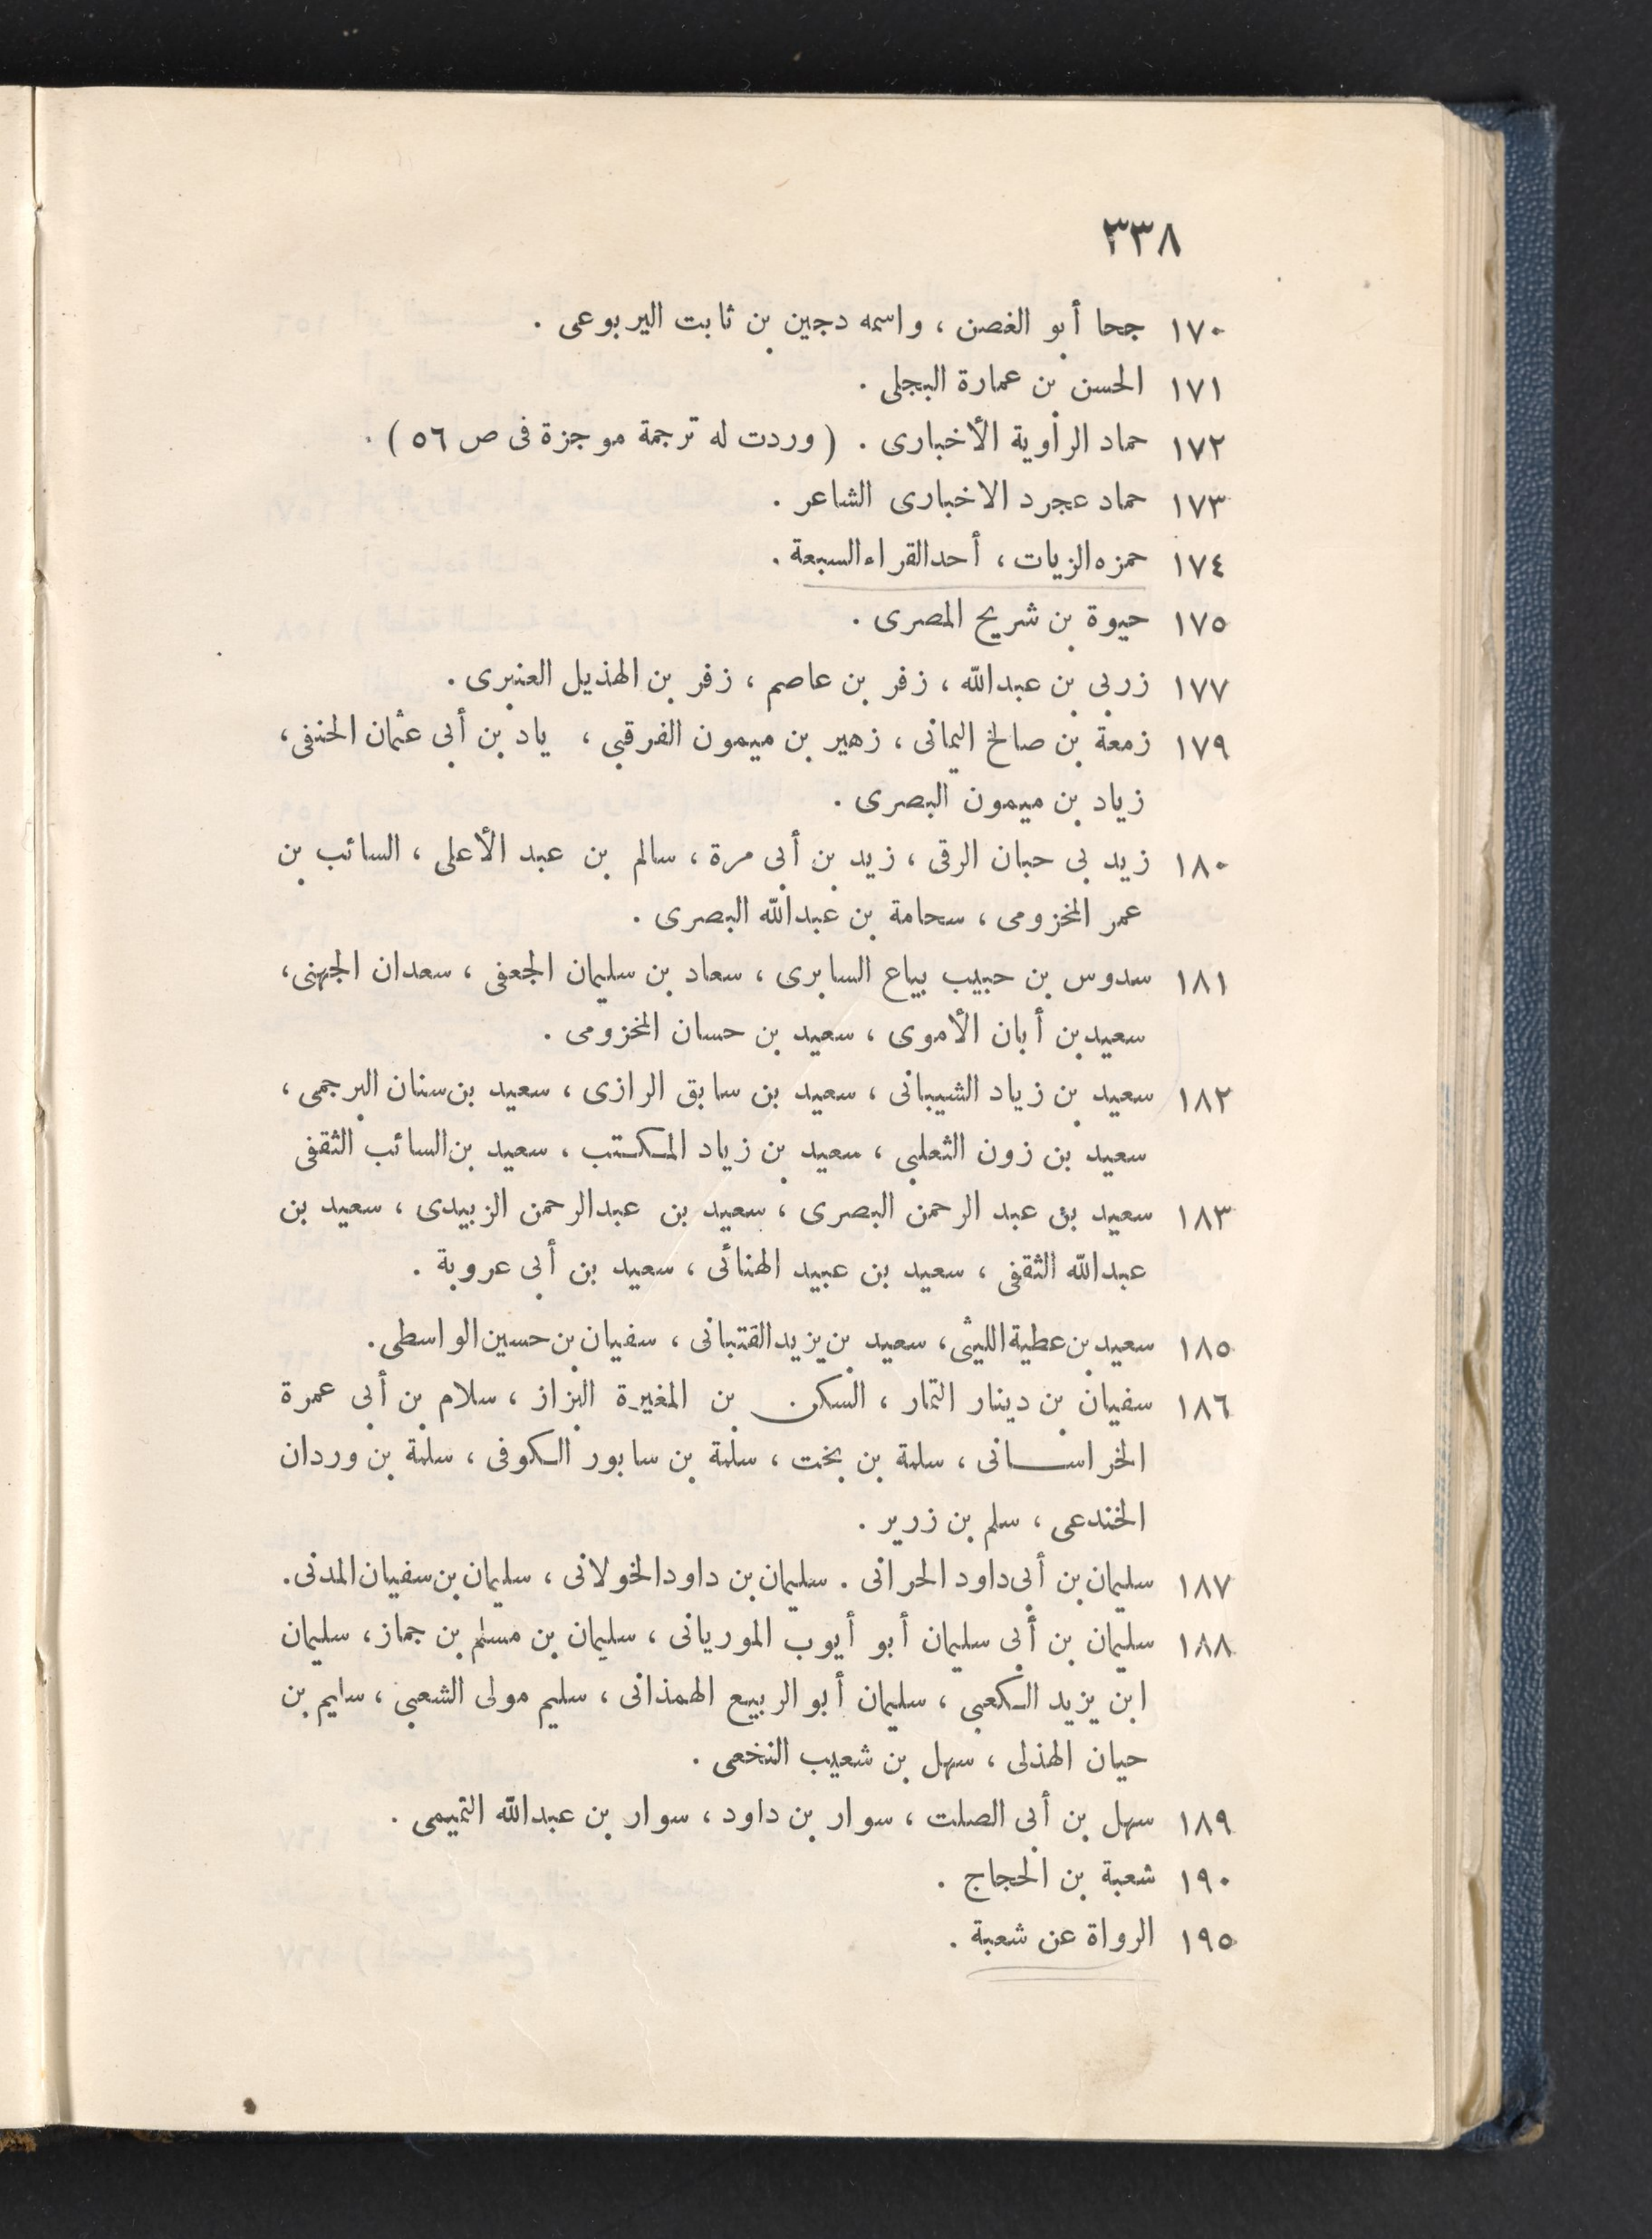 ٣٣٨
١٧٠ جحا أبو الغصن ، واسمه دجين بن ثابت اليربوعى .
١٧١ الحسن بن عمارة البجلى .
١٧٢ حماد الراوية الأخبارى . ( وردت له ترجمة موجزة فى ص ٥٦ ) .
١٧٣ حماد عجرد الاخبارى الشاعر .
١٧٤ حمزه الزيات ، أحد القراء السبعة .
١٧٥ حيوة بن شريح المصرى .
١٧٧ زربى بن عبدالله ، زفر بن عاصم ، زفر بن الهذيل العنبرى .
١٧٩ زمعة بن صالح اليمانى ، زهير بن ميمون الفرقبى ، ياد بن أبى عثمان الحنفى ،
زياد بن ميمون البصرى .
١٨٠ زيد بى حبان الرقى ، زيد بن أبى مرة ، سالم بن عبد الأعلى ، السائب بن
عمر المخزومى ، سحامة بن عبدالله البصرى .
١٨١ سدوس بن حبيب بياع السابرى ، سعاد بن سليمان الجعفى ، سعدان الجهنى ،
سعيد بن أبان الأموى ، سعيد بن حسان المخزومى .
١٨٢ سعيد بن زياد الشيبانى ، سعيد بن سابق الرازى ، سعيد بن سنان البرجمى ،
سعيد بن زون الثعلبى ، سعيد بن زياد المكتب ، سعيد بن السائب الثقفى
١٨٣ سعيد بن عبد الرحمن البصرى ، سعيد بن عبدالرحمن الزبيدى ، سعيد بن
عبدالله الثقفى ، سعيد بن عبيد الهنائى ، سعيد بن أبى عروبة .
١٨٥ سعيد بن عطية الليثى ، سعيد بن يزيد القتبانى ، سفيان بن حسين الواسطى .
١٨٦ سفيان بن دينار التمار ، السكن بن المغيرة البزاز ، سلام بن أبى عمرة
الخراسانى ، سلمة بن بخت ، سلمة بن سابور الكوفى ، سلمة بن وردان
الخندعى ، سلم بن زرير .
١٨٧ سليمان بن أبى داود الحرانى . سليمان بن داود الخولانى ، سليمان بن سفيان المدنى .
١٨٨ سليمان بن أبى سليمان أبو أيوب الموريانى ، سليمان بن مسلم بن جماز ، سليمان
ابن يزيد الكعبى ، سليمان أبو الربيع الهمذانى ، سليم مولى الشعبى ، سليم بن
حيان الهذلى ، سهل بن شعيب النخعى .
١٨٩ سهل بن أبى الصلت ، سوار بن داود ، سوار بن عبدالله التميمى .
١٩٠ شعبة بن الحجاج .
١٩٥ الرواة عن شعبة .